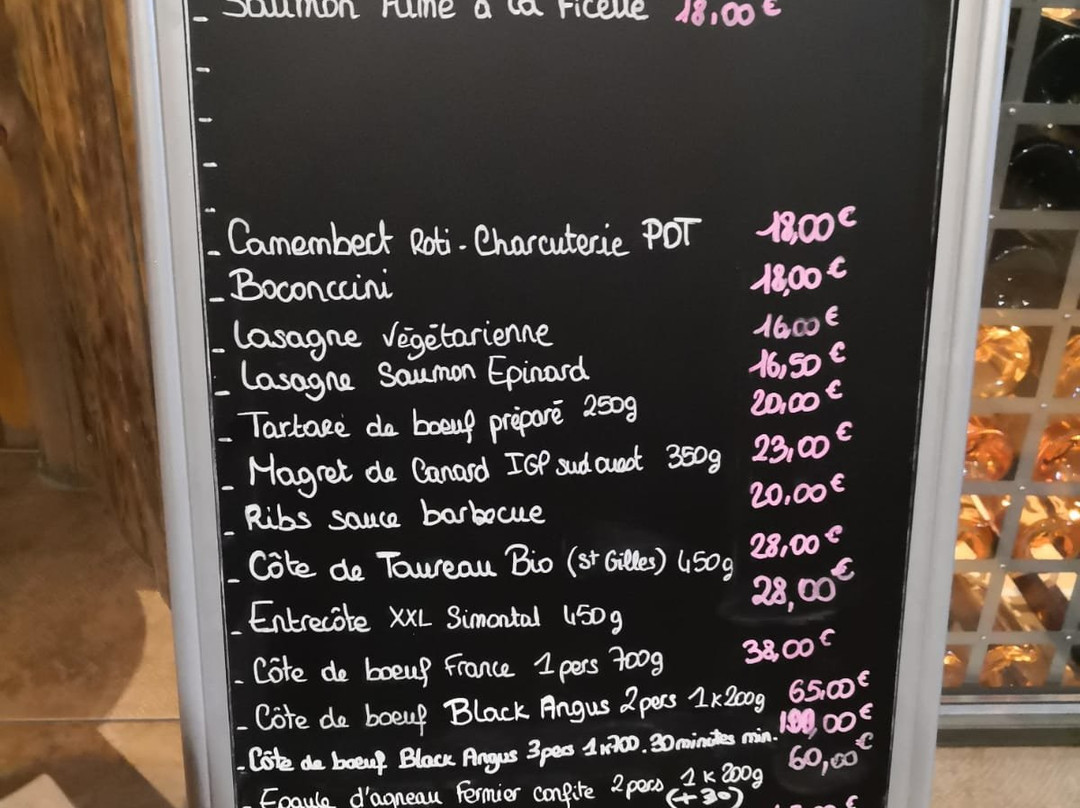 - Saumon Fumé à la Ficelle 18,00 €
-
-
-
-
- Camembert Roti - Charcuterie PDT 18,00 €
- Boconccini 18,00 €
- Lasagne Végétarienne 16,00 €
- Lasagne Saumon Epinard 16,50 €
- Tartare de boeuf préparé 250g 20,00 €
- Magret de Canard IGP sud ouest 350g 23,00 €
- Ribs sauce barbecue 20,00 €
- Côte de Taureau Bio (St Gilles) 450g 28,00 €
- Entrecôte XXL Simontal 450g 28,00 €
- Côte de boeuf France 1 pers 700g 38,00 €
- Côte de boeuf Black Angus 2 pers 1k200g 65,00 €
- Côte de boeuf Black Angus 3 pers 1k700. 30 minutes min. ,00 €
- Epaule d'agneau Fermier confite 2 pers 1k200g 60,00 €
(+30)